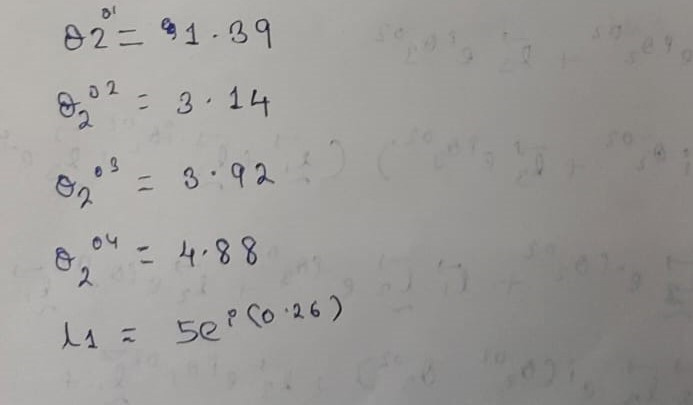 θ2⁰¹ = 1.39
θ₂⁰² = 3.14
θ₂⁰³ = 3.92
θ₂⁰⁴ = 4.88
λ1 = 5e^i(0.26)